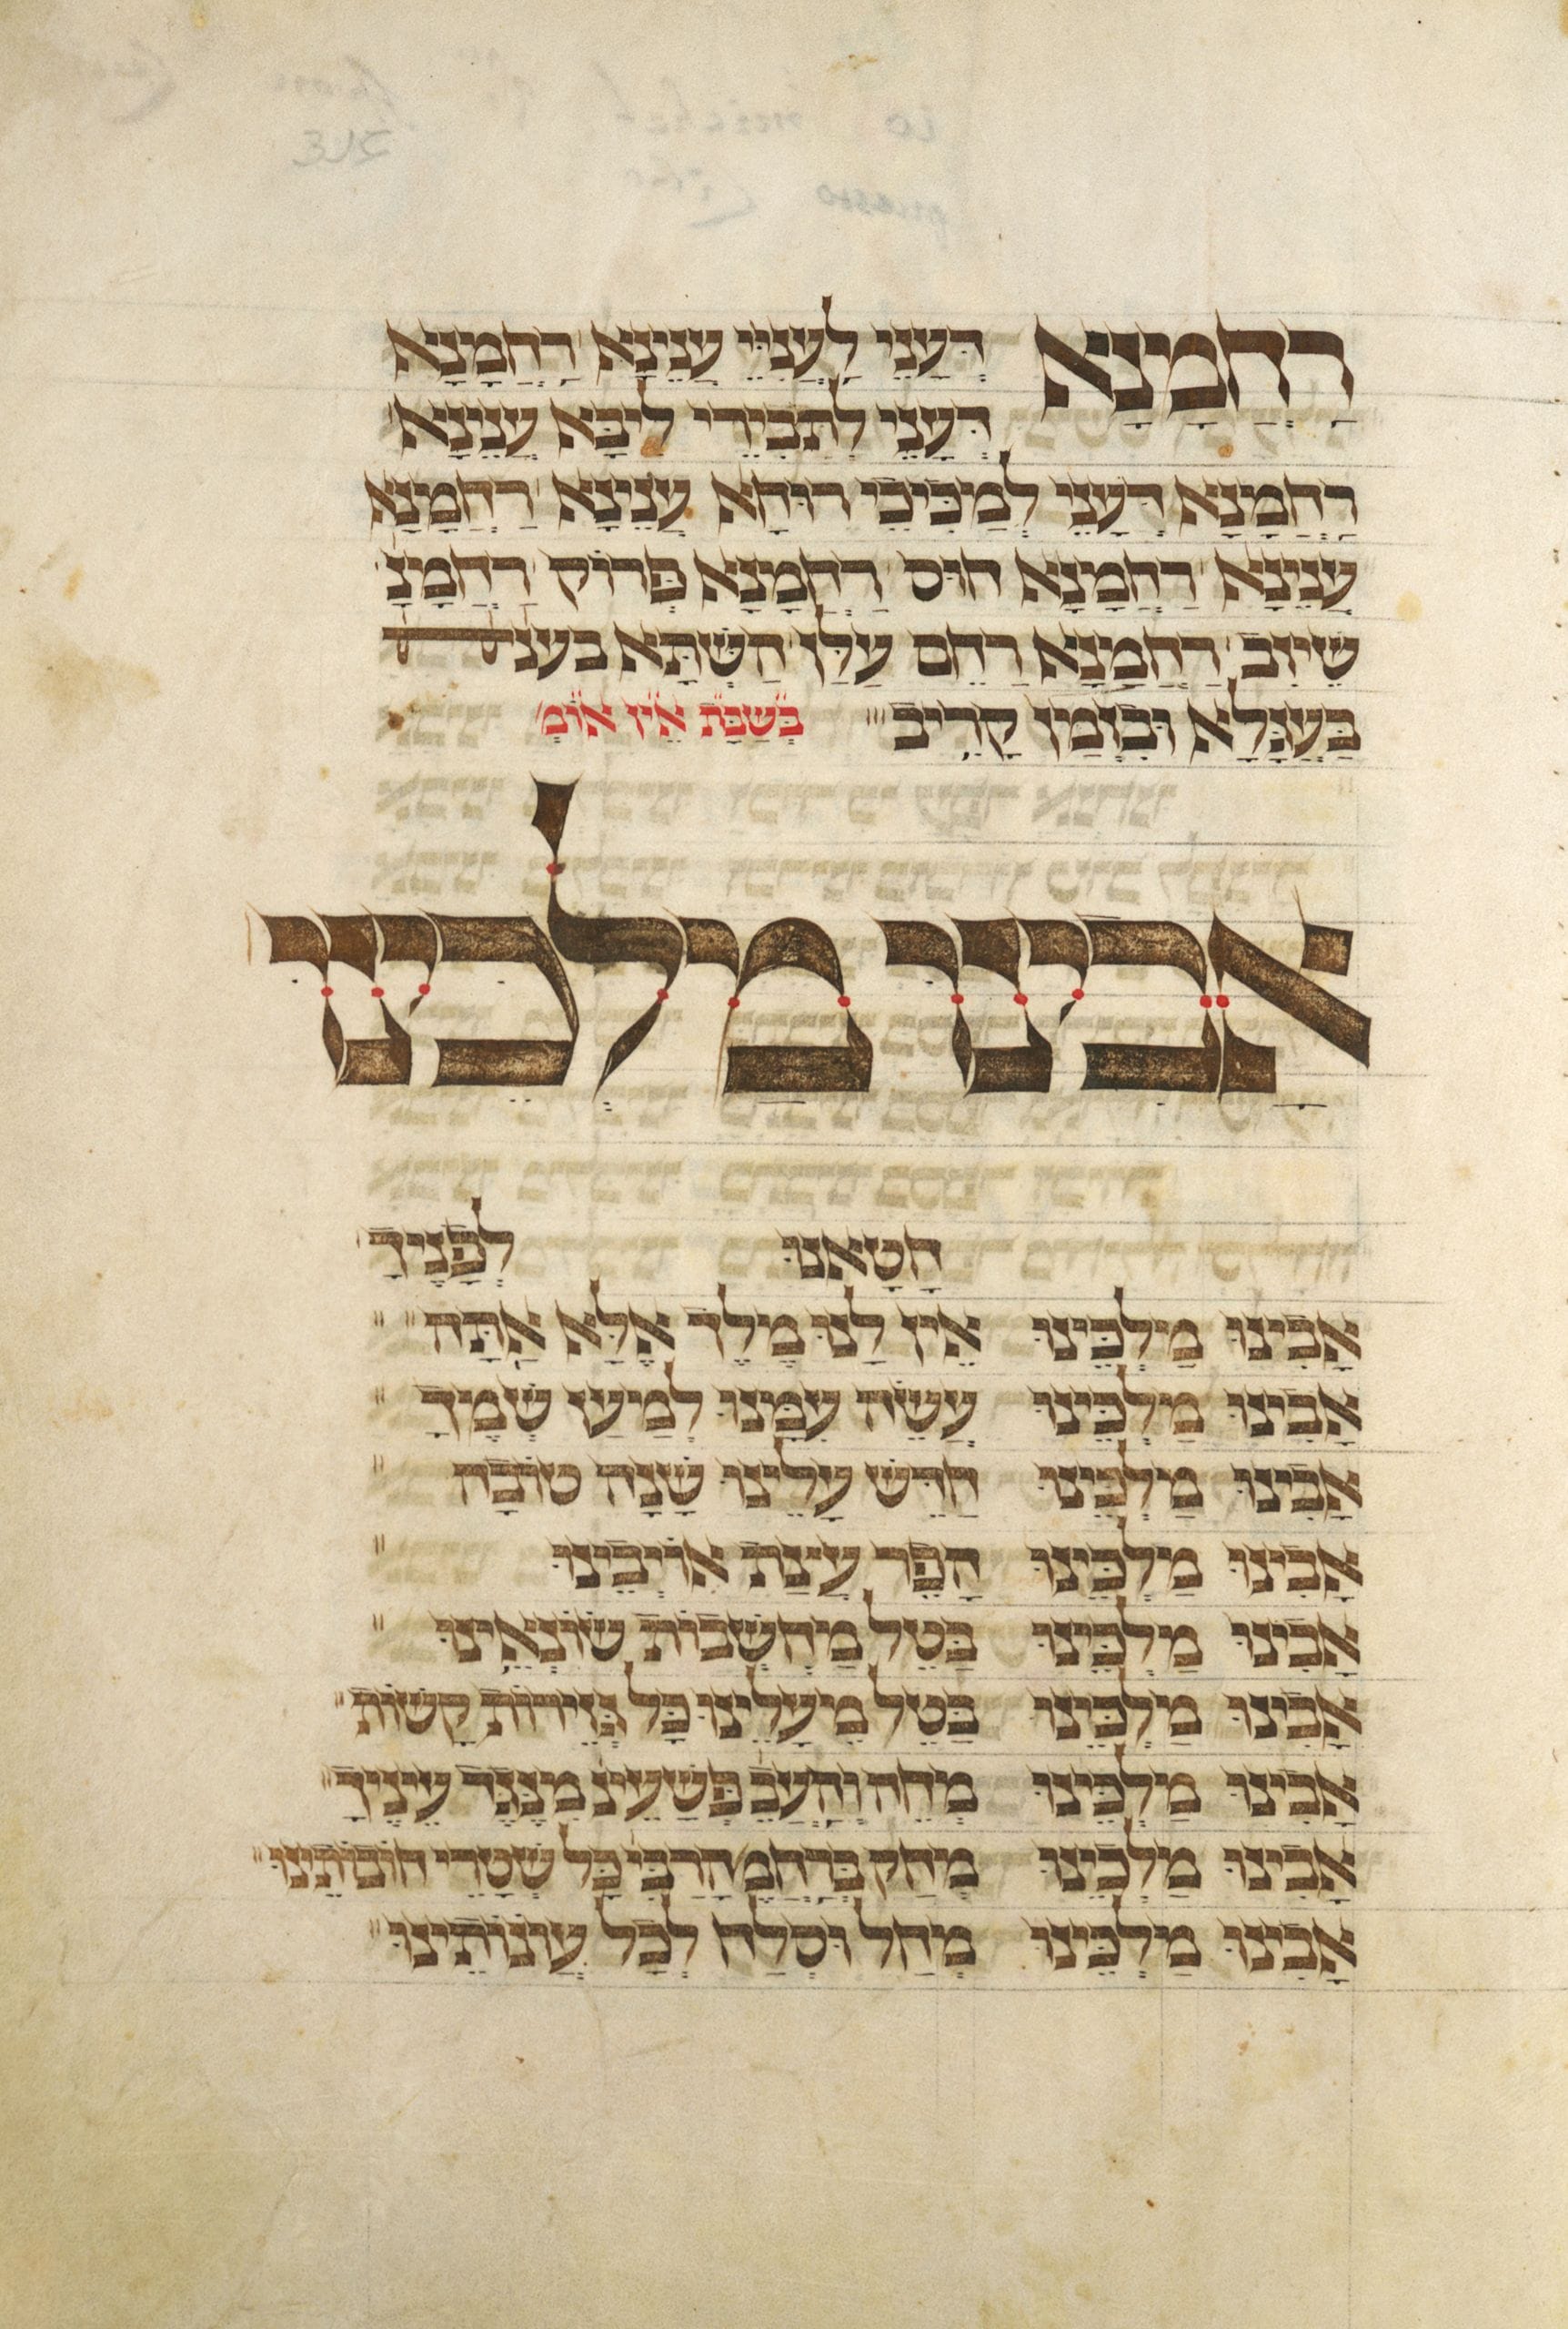 רַחֲמָנָא דְּעָנֵי לַעֲנִיֵּי עֲנֵינָא רַחֲמָנָא
דְּעָנֵי לִתְבִירֵי לִיבָּא עֲנֵינָא
רַחֲמָנָא דְּעָנֵי לְמַכִּיכֵי רוּחָא עֲנֵינָא רַחֲמָנָא
עֲנֵינָא רַחֲמָנָא חוּס רַחֲמָנָא פְּרוֹק רַחֲמָנָ
שֵׁזִיב רַחֲמָנָא רַחֵם עֲלַן הַשְׁתָּא בעג
בַּעֲגָלָא וּבִזְמַן קָרִיב בְּשַׁבָּת אֵין אוֹמְ
אָבִינוּ מַלְכֵּינוּ
חָטָאנוּ לְפָנֶיךָ
אָבִינוּ מַלְכֵּינוּ אֵין לָנוּ מֶלֶךְ אֶלָּא אַתָּה
אָבִינוּ מַלְכֵּינוּ עֲשֵׂה עִמָּנוּ לְמַעַן שְׁמֶךָ
אָבִינוּ מַלְכֵּינוּ חַדֵּשׁ עָלֵינוּ שָׁנָה טוֹבָה
אָבִינוּ מַלְכֵּינוּ הָפֵר עֲצַת אוֹיְבֵינוּ
אָבִינוּ מַלְכֵּינוּ בַּטֵּל מַחְשְׁבוֹת שׂוֹנְאֵינוּ
אָבִינוּ מַלְכֵּינוּ בַּטֵּל מֵעָלֵינוּ כָּל גְּזֵירוֹת קָשׁוֹת
אָבִינוּ מַלְכֵּינוּ מְחֵה וְהַעֲבֵ פְּשָׁעֵינ מִנֶּגֶד עֵינֶיךָ
אָבִינוּ מַלְכֵּינוּ מְחַק בְּרַחֲמֶ הָרַבִּי כָּל שִׁטְרֵי חוֹבוֹתֵינוּ
אָבִינוּ מַלְכֵּינוּ מְחַל וּסְלַח לְכָל עֲוֹנוֹתֵינוּ